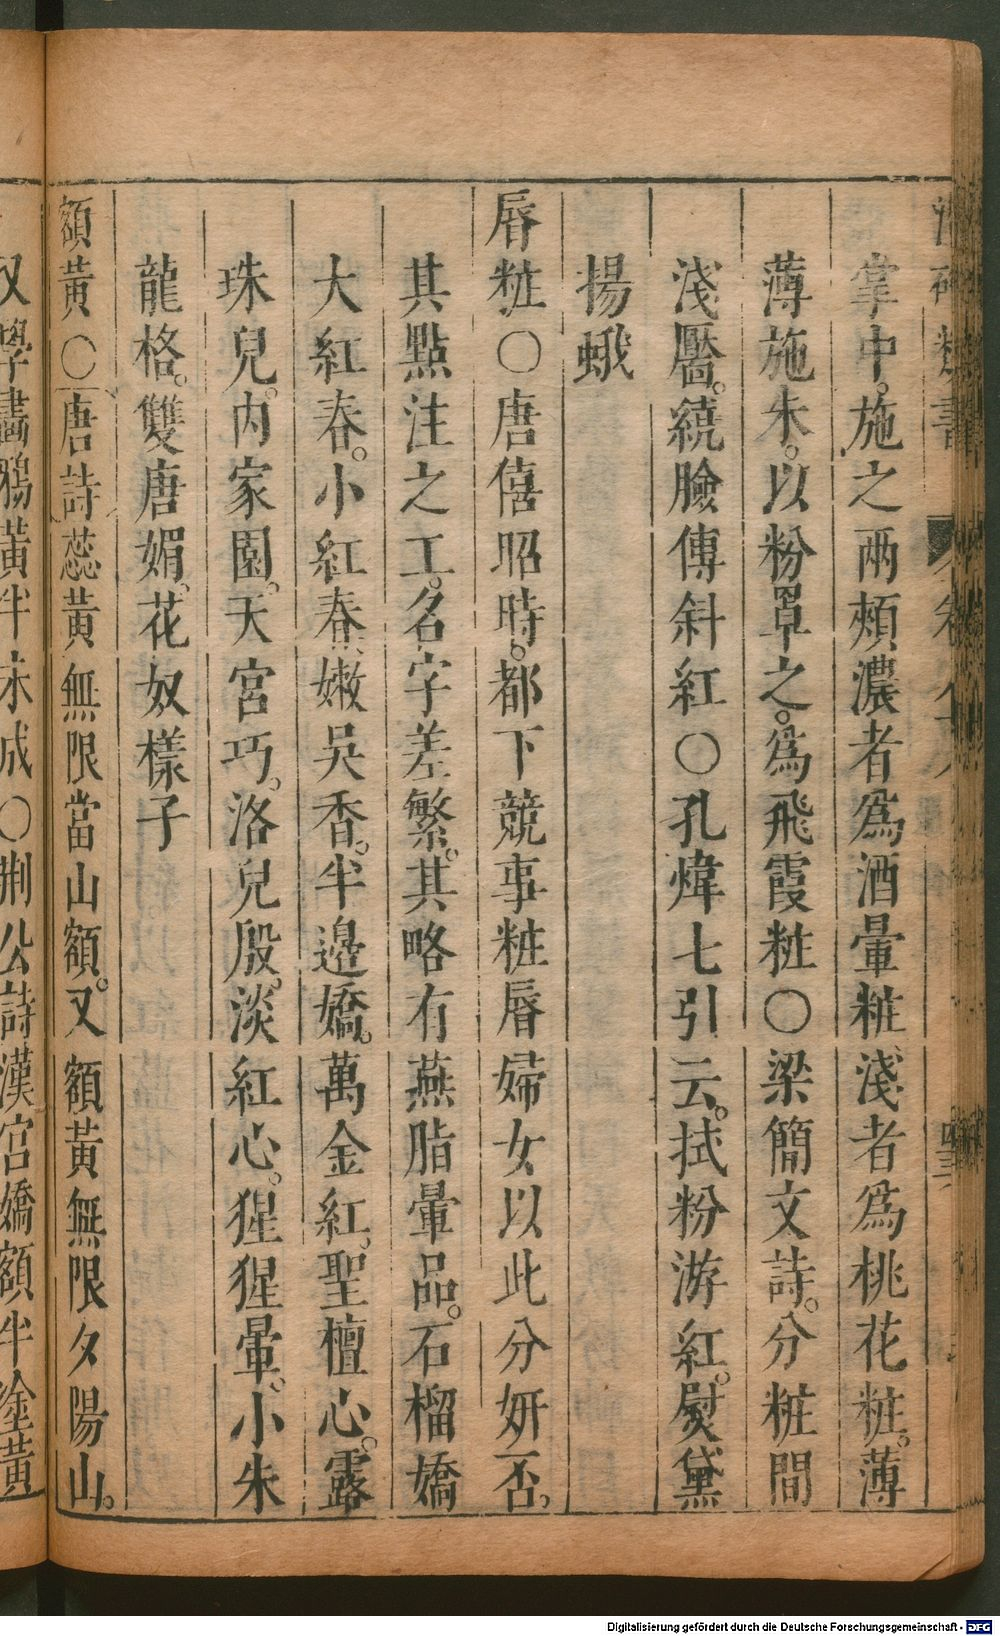 掌中。施之兩頰濃者爲酒暈粧淺者爲桃花粧。薄
薄施朱。以粉罩之。爲飛霞粧〇梁簡文詩。分粧間
淺靨。繞臉傳斜紅〇孔煒七引云。拭粉游紅。熨黛
揚蛾
唇粧〇唐僖昭時。都下競事粧唇婦女以此分妍否。
其點注之工。名字差繁。其略有燕脂暈品。石榴嬌
大紅春。小紅春嫩吳香。半邊嬌。萬金紅。聖檀心。露
珠兒。內家園。天宮巧。洛兒殷。淡紅心。猩猩暈。小朱
龍格。雙唐媚。花奴樣子
額黃〇唐詩蕊黃無限當山額。又額黃無限夕陽山。
又學畫鴉黃半未成〇荆公詩漢宮嬌額半塗黃
Digitalisierung gefördert durch die Deutsche Forschungsgemeinschaft - DFG